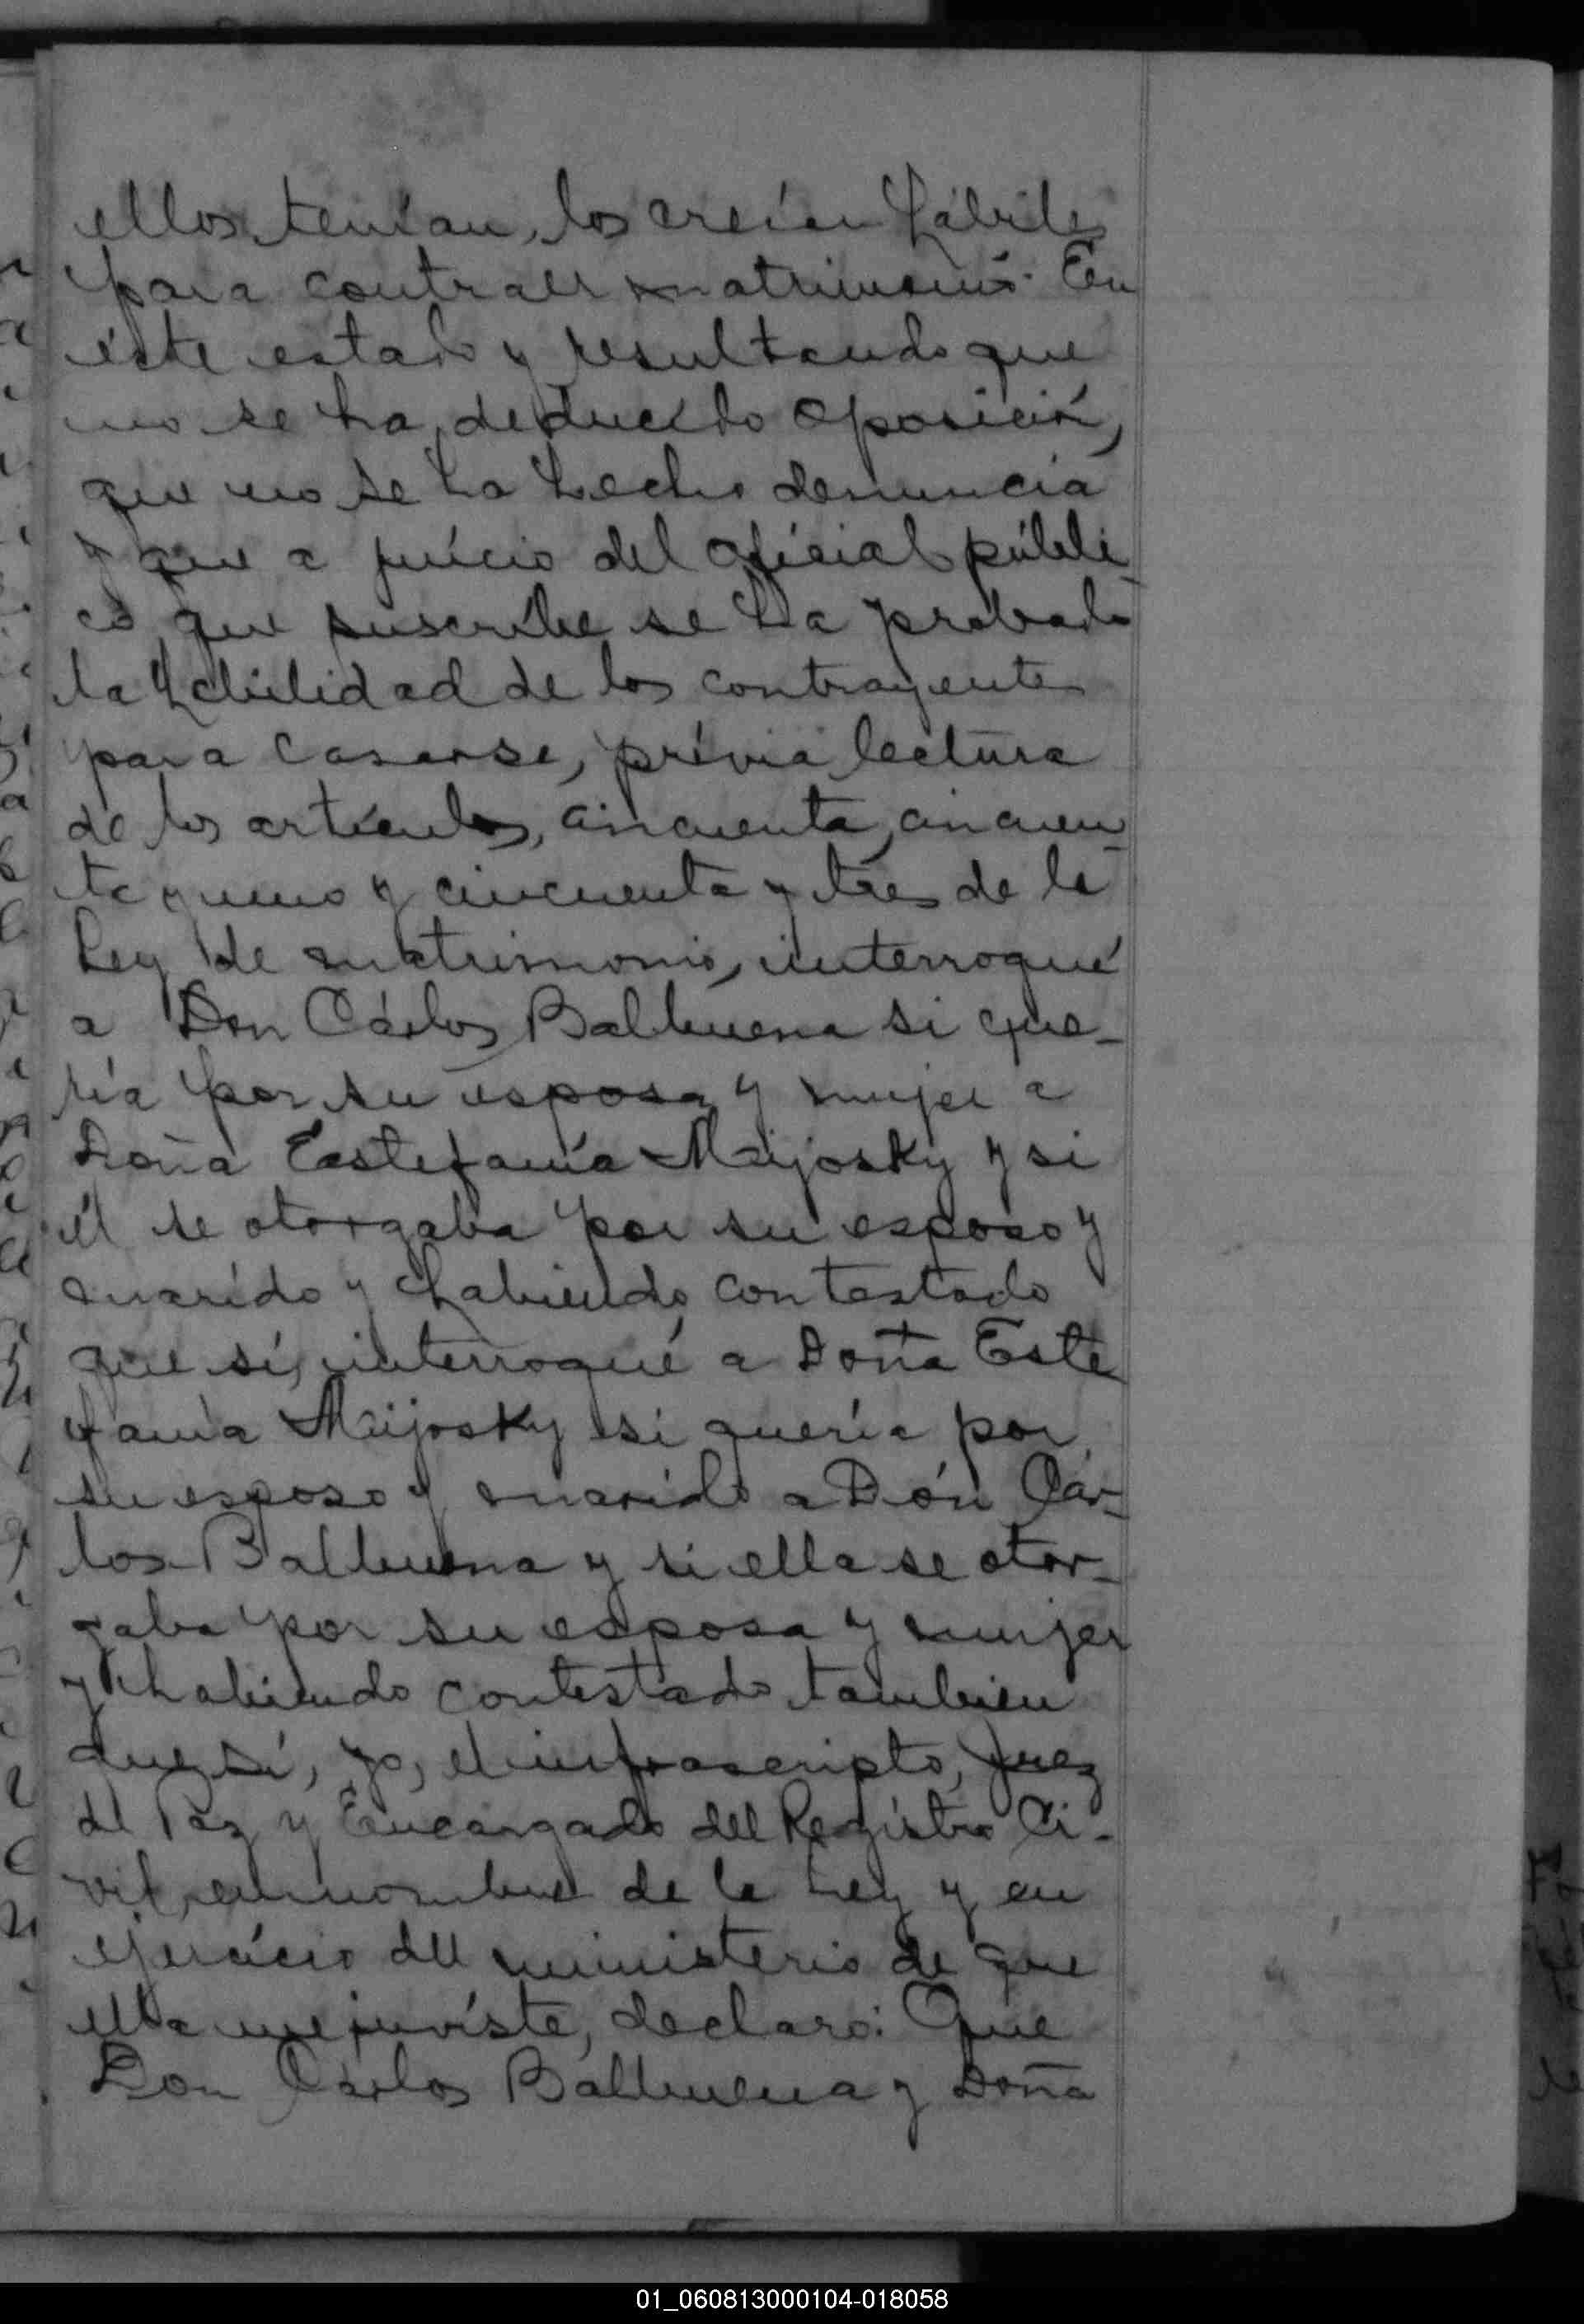 ellos tenían, los creían hábiles
para contraer matrimonio. En
éste estado y resultando que
no se ha deducído oposición,
que no se ha hecho denuncia
y que a juício del oficial públi-
co que suscribe se ha probado
la habilidad de los contrayentes
para casarse, prévia lectura
de los artículos, cincuenta, cincuen-
ta y uno y cincuenta y tres de la
Ley de matrimonio, interrogué
a Don Cárlos Balbuena si que-
ría por su esposa y mujer a
Doña Estefanía Maijosky y si
él se otorgaba por su esposo y
marído y habiendo contestado
que sí, interrogué a Doña Este
fanía Maijosky si quería por
su esposo y marido a Dón Cár-
los Balbuena y si ella se otor-
gaba por su esposa y mujer
y habiendo contestado tambien
que sí, yo, el infrascripto, Juez
de Paz y Encargado del Regístro Ci-
vil, en nombre de la Ley y en
ejercício del ministerio de que
ella me invíste, declaro: Que
Don Cárlos Balbuena y Doña
01_060813000104-018058